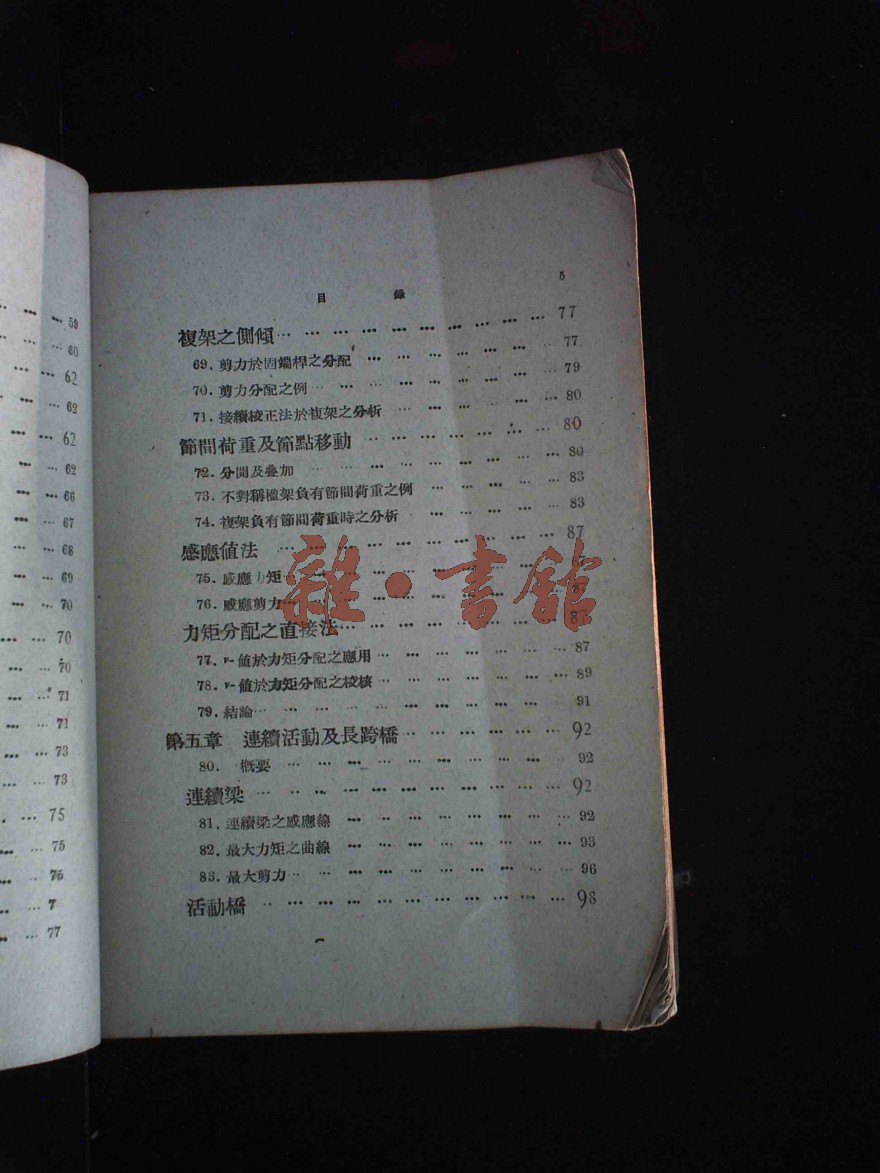 59
60
62
62
62
62
66
67
68
69
70
70
70
71
71
73
73
75
75
76
7
77
目 錄 5
複架之側傾 77
69. 剪力於固端桿之分配 77
70. 剪力分配之例 79
71. 接續校正法於複架之分析 80
節間荷重及節點移動 80
72. 分開及叠加 80
73. 不對稱楹架負有節間荷重之例 83
74. 複架負有節間荷重時之分析 83
感應值法 87
75. 感應力矩
76. 感應剪力 87
力矩分配之直接法 87
77. ν-値於力矩分配之應用 87
78. ν-値於力矩分配之校核 89
79. 結論 91
第五章 連續活動及長跨橋 92
80. 概要 92
連續梁 92
81. 連續梁之感應線 92
82. 最大力矩之曲線 93
83. 最大剪力 96
活動橋 98
雜·書館